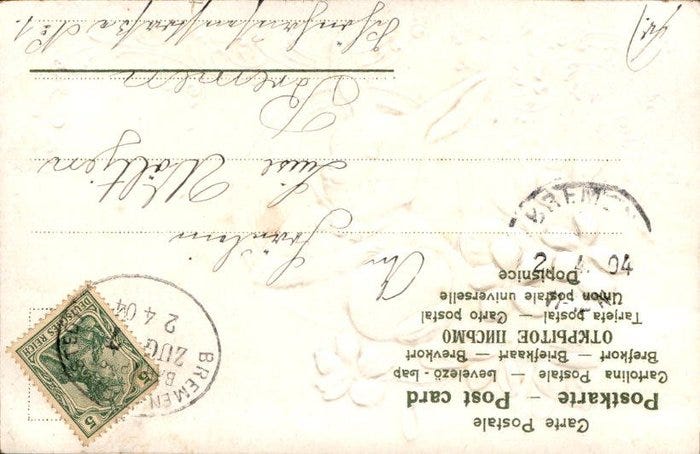 Carte Postale
Postkarte — Post card
Cartolina Postale — Levelező-Lap
Brefkort — Briefkaart — Brevkort
ОТКРЫТОЕ ПИСЬМО
Tarjeta postal — Carto postal
Union postale universelle
Dopisnice
BREMEN
2 4 04
BREMEN
ZUG
2 4 04
DEUTSCHES REICH
5
5
An
Fräulein
Luise Wältjen
Bremen